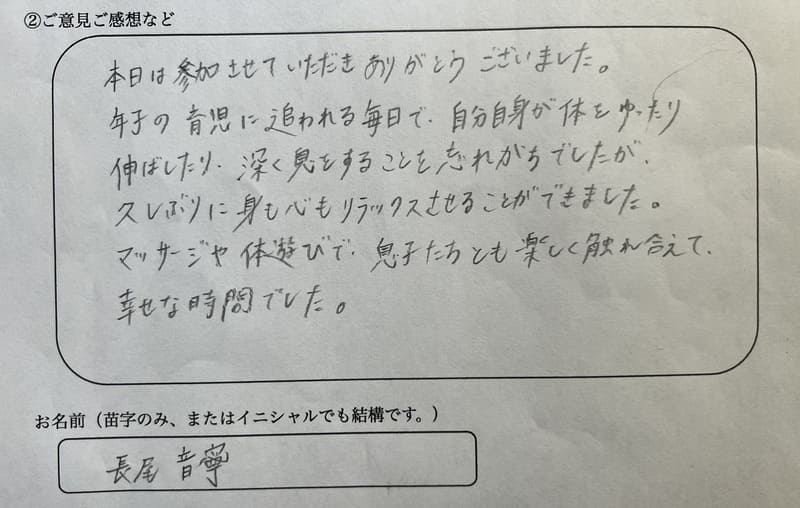 ②ご意見ご感想など
本日は参加させていただきありがとうございました。
年子の育児に追われる毎日で、自分自身が体をゆったり
伸ばしたり、深く息をすることを忘れがちでしたが、
久しぶりに身も心もリラックスさせることができました。
マッサージや体遊びで、息子たちとも楽しく触れ合えて、
幸せな時間でした。
お名前（苗字のみ、またはイニシャルでも結構です。）
長尾 音寧